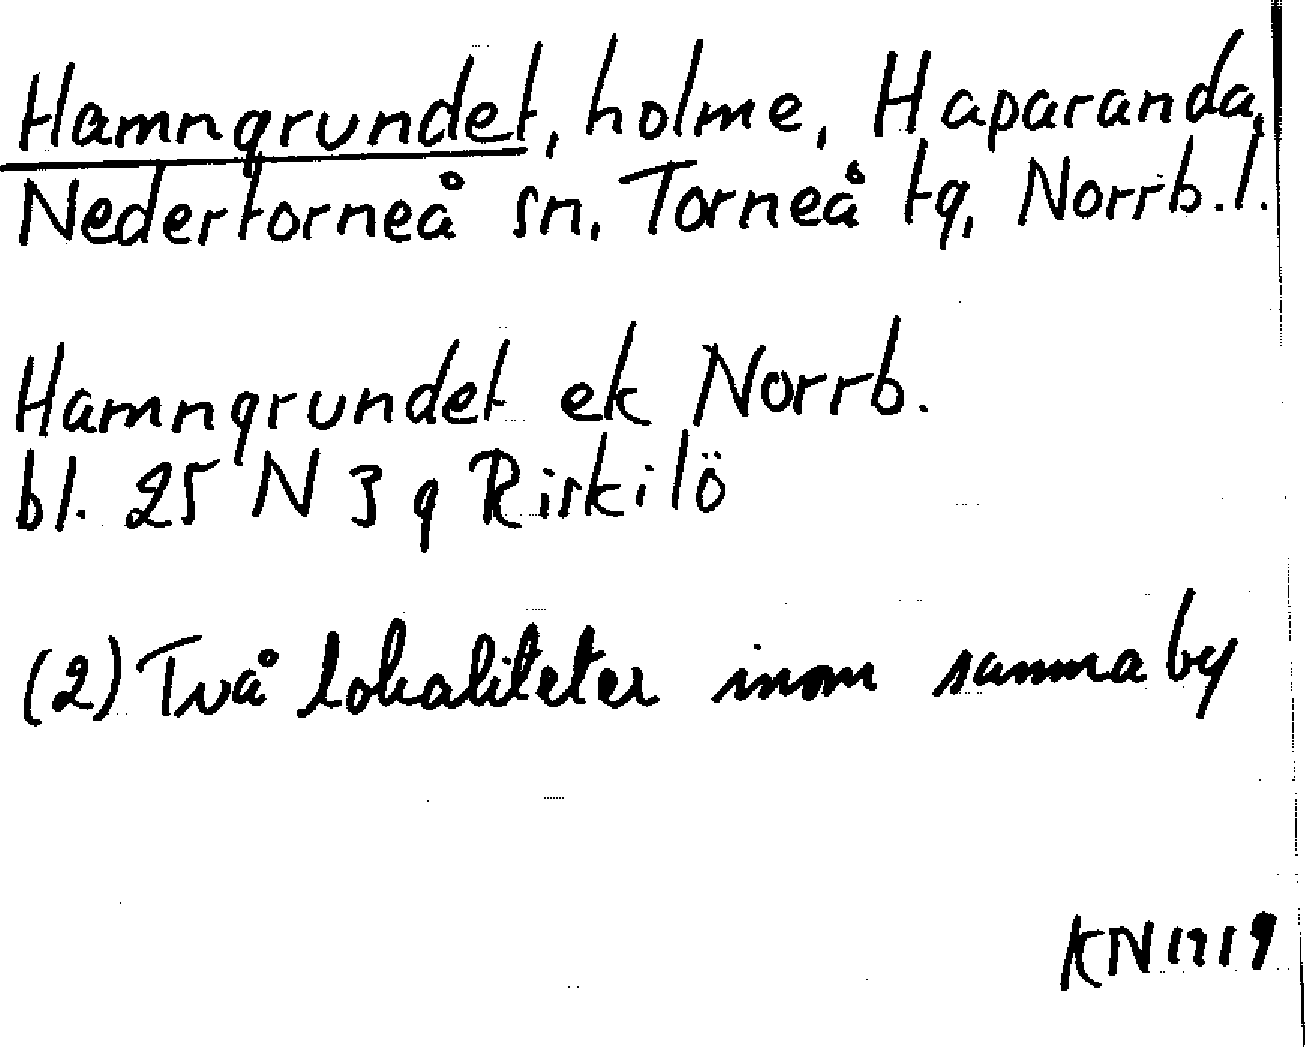 Hamngrundet, holme, Haparanda,
Nedertorneå sn, Torneå tg, Norrb.l.
Hamngrundet ek Norrb.
bl. 25 N 3 g Riskilö
(2) Två lokaliteter inom samma by